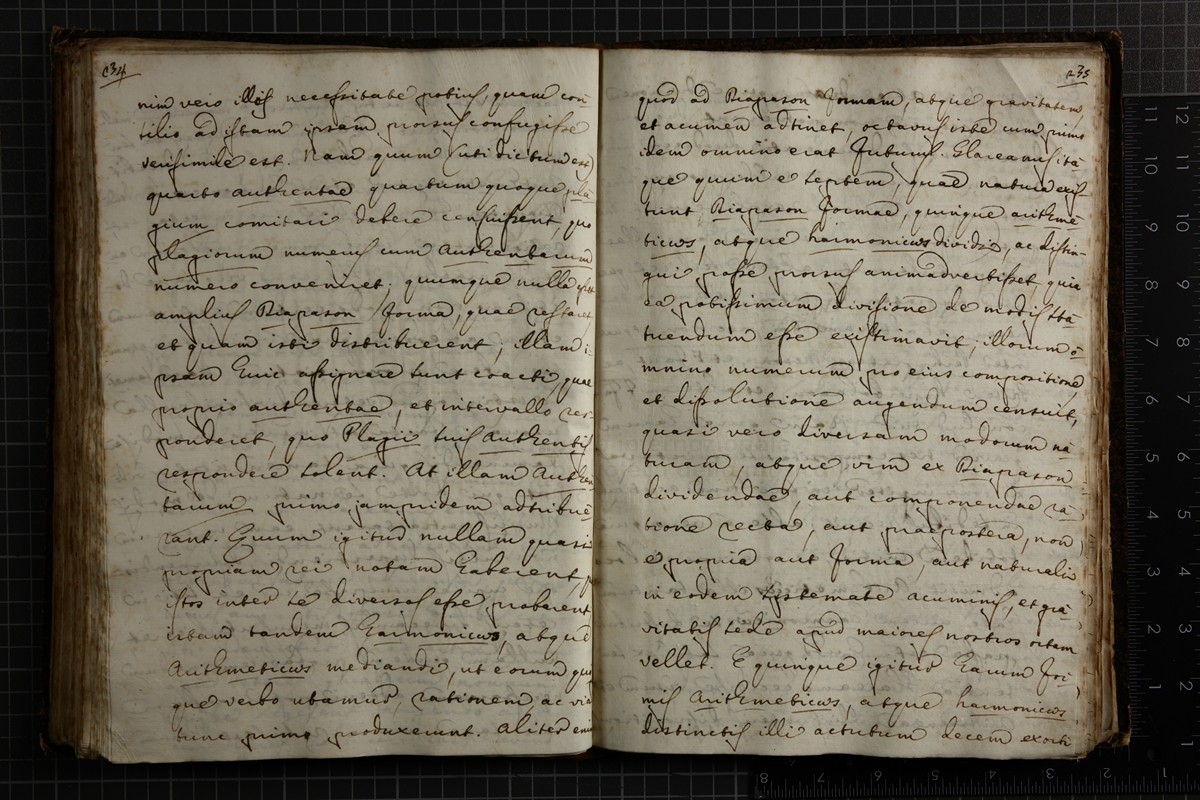 234
nim vero illos necessitate potius, quam con-
silio ad istam ipsam, prorsus confugisse
verisimile est. Nam quum (uti dictum est
quarto authentae quartum quoque pla-
gium comitari debere censuissent, quo
plagiorum numerus cum Authentarum
numero conveniret; quumque nulla esset
amplius Diapason forma, quae restaret,
et quam isti distribuerent; illam i-
psam huic assignare sunt coacti, quae
proprio authentae, et intervallo res-
ponderet, quo Plagii suis Authentis
respondere solent. At illam Authen-
tarum primo jampridem adtribue-
rant. Quum igitur nullam quasi
propriam rei notam haberent,
istos inter se diversos esse probarent
istam tandem harmonicws, atque
Arithmeticws mediandi, ut eorum qui
que verbo utamur, rationem ac via
tunc primo produxerunt. Aliter enim
235
quod ad Diapason formam, atque gravitatem
et acumen adtinet, octavus iste cum primo
idem omnino erat futurus. Glareanus ita-
que quum e septem, quae natura exis-
tunt Diapason formae, quinque arithme-
ticws, atque harmonicws dividi, ac distin-
gui posse prorsus animadvertisset, quia
ea potissimum divisione de modis sta-
tuendum esse existimavit; illorum o-
mnino numerum pro eius compositione
et dissolutione augendum censuit,
quasi vero diversam modorum na-
turam, atque vim ex Diapason
dividendae, aut componendae ra-
tione recta, aut praepostera, non
e propria aut forma, aut naturalis
in eodem systemate acuminis, et gra-
vitatis sede apud maiores nostros ortam
vellet. E quinque igitur harum for-
mis Arithmeticws, atque harmonicws
distinctis illi actutum decem exorti